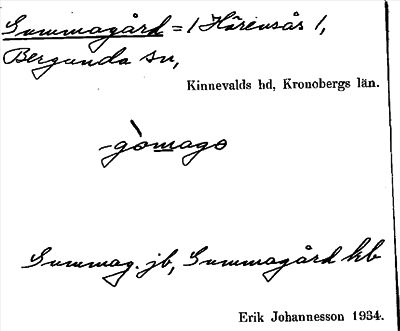 Gummagård = 1 Härensås 1,
Bergunda sn,
Kinnevalds hd, Kronobergs län.
-gòmago
Gummag. jb, Gummagård hb
Erik Johannesson 1934.